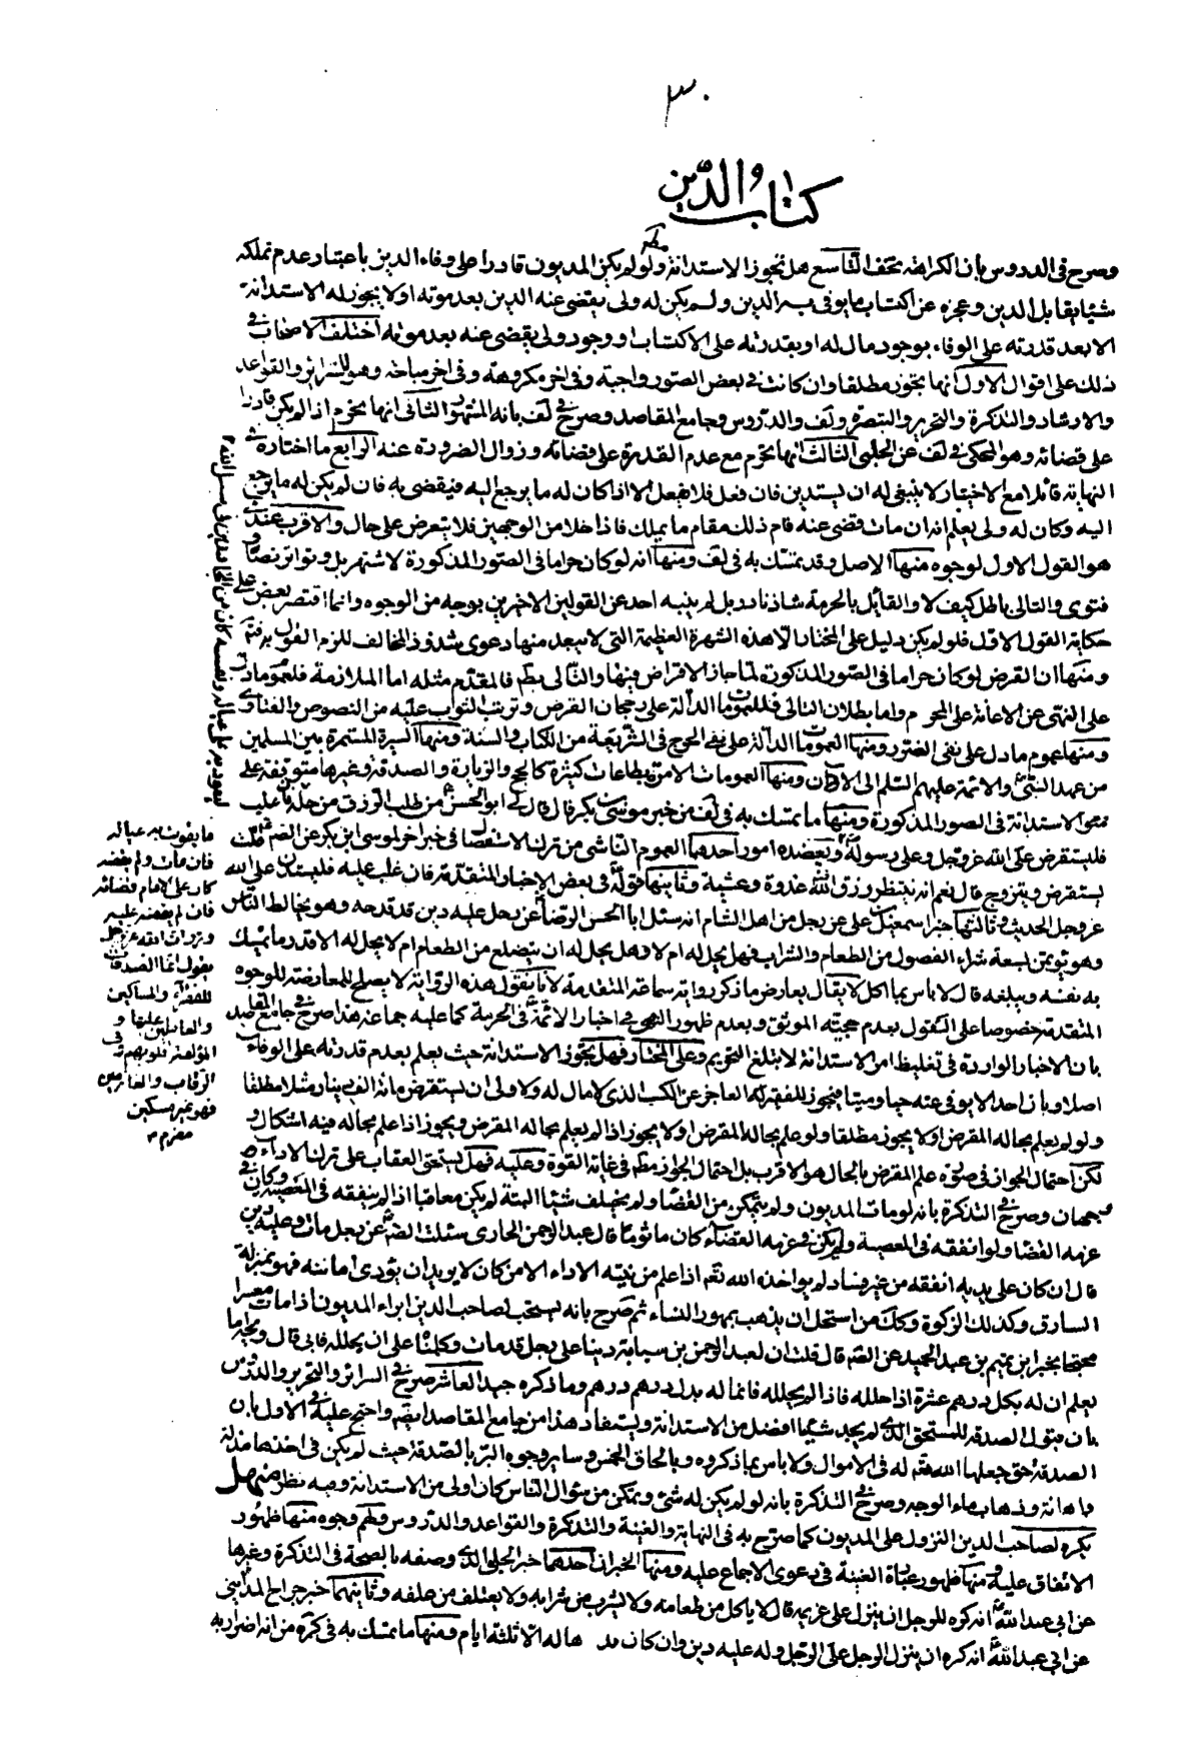 ٣٠
كتاب الدين
وصرح فى الدروس بان الكراهة تخف التاسع هل تجوز الاستدانة ولو لم يكن المديون قادرا على وفاء الدين باعتبار عدم تملكه
شيئا يقابل الدين وعجزه عن اكتساب ما يوفى به الدين ولم يكن له ولى يقضى عنه الدين بعد موته او لا يجوز له الاستدانة
الا بعد قدرته على الوفاء بوجود مال له او بقدرته على الاكتساب او وجود ولى يقضى عنه بعد موته اختلف الاصحاب فى
ذلك على اقوال الاول انها يجوز مطلقا وان كانت فى بعض الصور واجبة وفى اخر مكروهة وفى اخر مباحة وهو للسرائر والقواعد
والارشاد والتذكرة والتحرير والتبصرة ولف والدروس وجامع المقاصد وصرح فى لف بانه المشهور الثانى انها يحرم اذا لم يكن قادرا
على قضائه وهو المحكى فى لف عن الحلبى الثالث انها يحرم مع عدم القدرة على قضائه وزوال الضرورة عنه الرابع ما اختاره فى
النهاية قائلا مع الاختيار لا ينبغى له ان يستدين فان فعل فلا يفعل الا اذا كان له ما يرجع اليه فيقضى به فان لم يكن له ما يرجع
اليه وكان له ولى يعلم انه ان مات قضى عنه قام ذلك مقام ما يملك فاذا خلا من الوجهين فلا يتعرض على حال والاقرب عندى
هو القول الاول لوجوه منها الاصل وقد تمسك به فى لف ومنها انه لو كان حراما فى الصور المذكورة لاشتهر بل وتواتر نصا و
فتوى والتالى باطل كيف لا والقائل بالحرمة شاذ نادر بل لم ينبه احد عن القولين الاخيرين بوجه من الوجوه وانما اقتصر بعض على
حكاية القول الاول فلو لم يكن دليل على المختار الا هذه الشهرة العظيمة التى لا يبعد منها دعوى شذوذ المخالف للزم القول به
ومنها ان القرض لو كان حراما فى الصور المذكورة لما جاز الاقراض فيها والتالى بطم فالمقدم مثله اما الملازمة فلعموم ما دل
على النهى عن الاعانة على المحرم واما بطلان التالى فللعمومات الدالة على رجحان القرض وترتب الثواب عليه من النصوص والفتاوى
ومنها عموم ما دل على نفى الضرر ومنها العمومات الدالة على نفى الحرج فى الشريعة من الكتاب والسنة ومنها السيرة المستمرة بين المسلمين
من عهد النبى والائمة عليهم السلم الى الان ومنها العمومات الامرة بطاعات كثيرة كالحج والزيارة والصدقة وغيرها متوقفة على
الاستدانة فى الصور المذكورة ومنها ما تمسك به فى لف من خبر موسى بن بكر قال قال لى ابو الحسن من طلب الرزق من حله فان غلب
فليستقرض على الله عز وجل وعلى رسوله ويعضده امور احدها العموم الناشى من ترك الاستفصال فى خبر اخر لموسى ابن بكر عن
يستقرض ويتزوج قال نعم انه ينتظر رزق الله غدوة وعشية وثانيها قوله فى بعض الاخبار المتقدمة فان غلب عليه فليستدن على الله
عز وجل الحديث وثالثها خبر اسمعيل عن رجل من اهل الشام انه سئل ابا الحسن الرضا عن رجل عليه دين قد فدحه وهو يخالط الناس
وهو يؤتمن يسعه شراء الفضول من الطعام والشراب فهل يحل له ام لا وهل يحل له ان يتضلع من الطعام ام لا يحل له الا قدر ما يمسك
به نفسه ويبلغه قال لا باس بما اكل لا يقال يعارض ما ذكر رواية سماعة المتقدمة لانا نقول هذه الرواية لا يصلح للمعارضة للوجوه
المتقدمة خصوصا على القول بعدم حجيته الموثق وبعدم ظهور النهى فى اخبار الائمة فى الحرمة كما عليه جماعة هذا وصرح فى جامع المقاصد
بان الاخبار الواردة فى تغليظ امر الاستدانة لا يبلغ التحريم وعلى المختار فهل يجوز الاستدانة حيث يعلم بعدم قدرته على الوفاء
اصلا وبان احدا لا يوفى عنه حيا وميتا فيجوز للفقير العاجز عن الكسب الذى لا مال له ولا ولى ان يستقرض مائة الف دينار مثلا مطلقا
ولو لم يعلم بحاله المقرض او لا يجوز مطلقا ولو علم بحاله المقرض او لا يجوز اذا لم يعلم بحاله المقرض ويجوز اذا علم بحاله فيه اشكال و
لكن احتمال الجواز فى صورة علم المقرض بالحال هو الاقرب بل احتمال الجواز مطم فى غاية القوة وعليه فهل يستحق العقاب على ترك الاداء
وجهان وصرح فى التذكرة بانه لو مات المديون ولم يتمكن من القضاء ولم يخلف شيئا البتة لم يكن معاقبا اذا لم ينفقه فى المعصية وكان فى
عزمه القضاء ولو انفقه فى المعصية ولم يكن فى عزمه القضاء كان ماثوما قال عبد الرحمن سئلت عن رجل مات وعليه دين
قال ان كان على يديه انفقه من غير فساد لم يؤاخذه الله نعم اذا علم من نيته الاداء الا من كان لا يريد ان يؤدى امانته فهو بمنزلة
السارق وكذلك الزكوة وكك من استحل ان يذهب بمهور النساء ثم صرح بانه يستحب لصاحب الدين ابراء المديون اذا مات معسرا
محتجا بخبر ابرهيم بن عبد الحميد عن الصم قال قلت ان لعبد الرحمن بن سيابة دينا على رجل قد مات وكلمنا على ان يحلله فابى قال ويحه اما
يعلم ان له بكل درهم عشرة اذا حلله فاذا لم يحلله فانما له بدل درهم درهم وما ذكره جيد العاشر صرح فى السرائر والتحرير والدروس
بان قبول الصدقة للمستحق الذى لم يجد شيئا افضل من الاستدانة ويستفاد هذا من جامع المقاصد ايضم واحتج عليه فى الاول بان
الصدقة حق جعلها الله له فى الاموال ولا باس بما ذكروه وبالحاق الخمس وساير وجوه البر بالصدقة حيث لم يكن فى اخذها مذلة
واهانة وذهاب ماء الوجه وصرح فى التذكرة بانه لو لم يكن له شئ وتمكن من سؤال الناس كان اولى من الاستدانة وفيه نظر منهل
يكره لصاحب الدين النزول على المديون كما صرح به فى النهاية والغنية والتذكرة والقواعد والدروس ولهم وجوه منها ظهور
الاتفاق عليه ومنها ظهور عبارة الغنية فى دعوى الاجماع عليه ومنها الخبران احدهما خبر الحلبى الذى وصفه بالصحة فى التذكرة وغيرها
عن ابى عبد الله انه كره للرجل ان ينزل على غريمه قال لا ياكل من طعامه ولا يشرب من شرابه ولا يعتلف من علفه وثانيهما خبر جراح المدائنى
عن ابى عبد الله انه كره ان ينزل الرجل على الرجل وله عليه دين وان كان له الا ثلثة ايام ومنها ما تمسك به فى كره من انه اضرار به
ليعود به على عياله ونفسه كان كالمجاهد فى سبيل الله
ما يقوت به عياله
فان مات ولم يقضه
كان على الامام قضائه
فان لم يقضه كان عليه
وزره ان الله عز وجل
يقول انما الصدقات
للفقراء والمساكين
والعاملين عليها و
المؤلفة قلوبهم وفى
الرقاب والغارمين
فهو فقير مسكين
مغرم